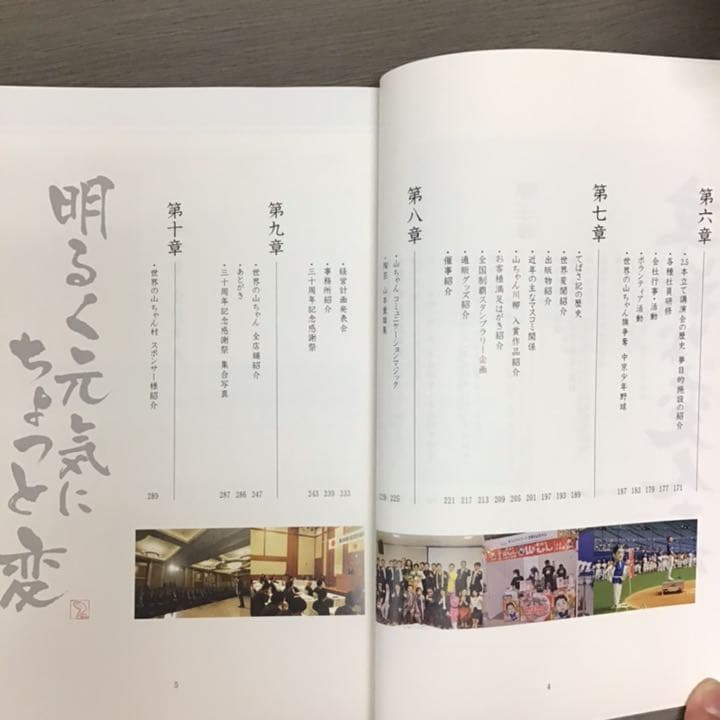 第六章
・25本立て講演会の歴史 夢目的施設の紹介 171
・各種社員研修 177
・会社行事・活動 179
・ボランティア活動 183
・世界の山ちゃん旗争奪 中京少年野球 187
第七章
・てばさ記の歴史 189
・世界変聞紹介 193
・出版物紹介 197
・近年の主なマスコミ関係 201
・山ちゃん川柳 入賞作品紹介 205
・お客様満足はがき紹介 209
・全国制覇スタンプラリー企画 213
・通販グッズ紹介 217
・催事紹介 221
第八章
・山ちゃん コミュニケーションマジック 225
・陶芸 山本重雄集 229
・経営計画発表会 233
・事務所紹介 239
・三十周年記念感謝祭 243
第九章
・世界の山ちゃん 全店舗紹介 247
・あとがき 286
・三十周年記念感謝祭 集合写真 287
第十章
・世界の山ちゃん村 スポンサー様紹介 289
明るく元気に
ちょっと変
4
5